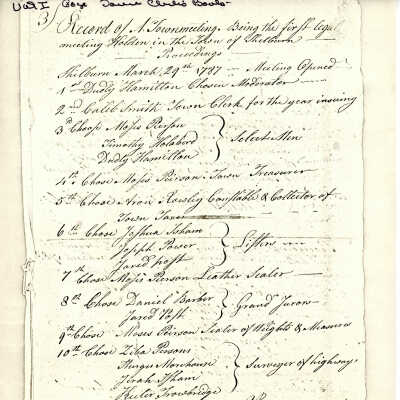 Vol I Page Town Clerks Books
3) Record of A Townmeeting, Being the first legal
meeting Holden in the Town of Shelburn
Proceedings
Shelburn March 29th 1787 — Meeting Opened
1st Dudly Hamilton Chosen Moderator
2nd Caleb Smith Town Clerk for the year insuing
3 Choose Moses Pierson
Timothy Holabird } Select Men
Dudly Hamilton
4th Chose Moses Pierson Town Treasurer
5th Chose Aron Constable & Collector of
Town Taxes
6th Chose Joshua Isham
Joseph Power } Listers
Jared Post
7th Chose Moses Pierson Leather Sealer
8th Chose Daniel Barber } Grand Jurors
Jared Post
9th Chose Moses Pierson Sealer of Weights & Measures
10th Chose Ziba Pierson
Sturges Morehouse } Surveyor of highways
Jirah Isham
Keeler Trowbridge